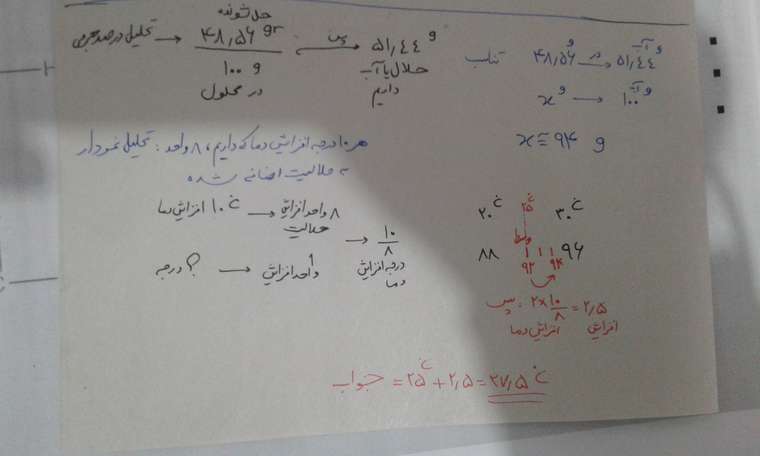 تحلیل درصد جرمی → حل شونده ۴۸٫۵۶ gr / ۱۰۰ g در محلول → پس ۵۱٫۴۴ g حلال یا آب داریم
تناسب ۴۸٫۵۶ g → در ۵۱٫۴۴ g آب
x g → ۱۰۰ g آب
x ≅ ۹۴ g
تحلیل نمودار : هر ۱۰ درجه افزایش دما که داریم، ۸ واحد
به حلالیت اضافه شده
۸ واحد افزایش حلالیت → ۱۰ °C افزایش دما
۱ واحد افزایش → ؟ درجه
→ ۱۰/۸ درجه افزایش دما
۲۰ °C ۲۵ °C ۳۰ °C
وسط
۸۸ ۹۲ ۹۴ ۹۶
پس : ۲ × ۱۰/۸ = ۲٫۵
افزایش دما افزایش
جواب = ۲۵ °C + ۲٫۵ = ۲۷٫۵ °C